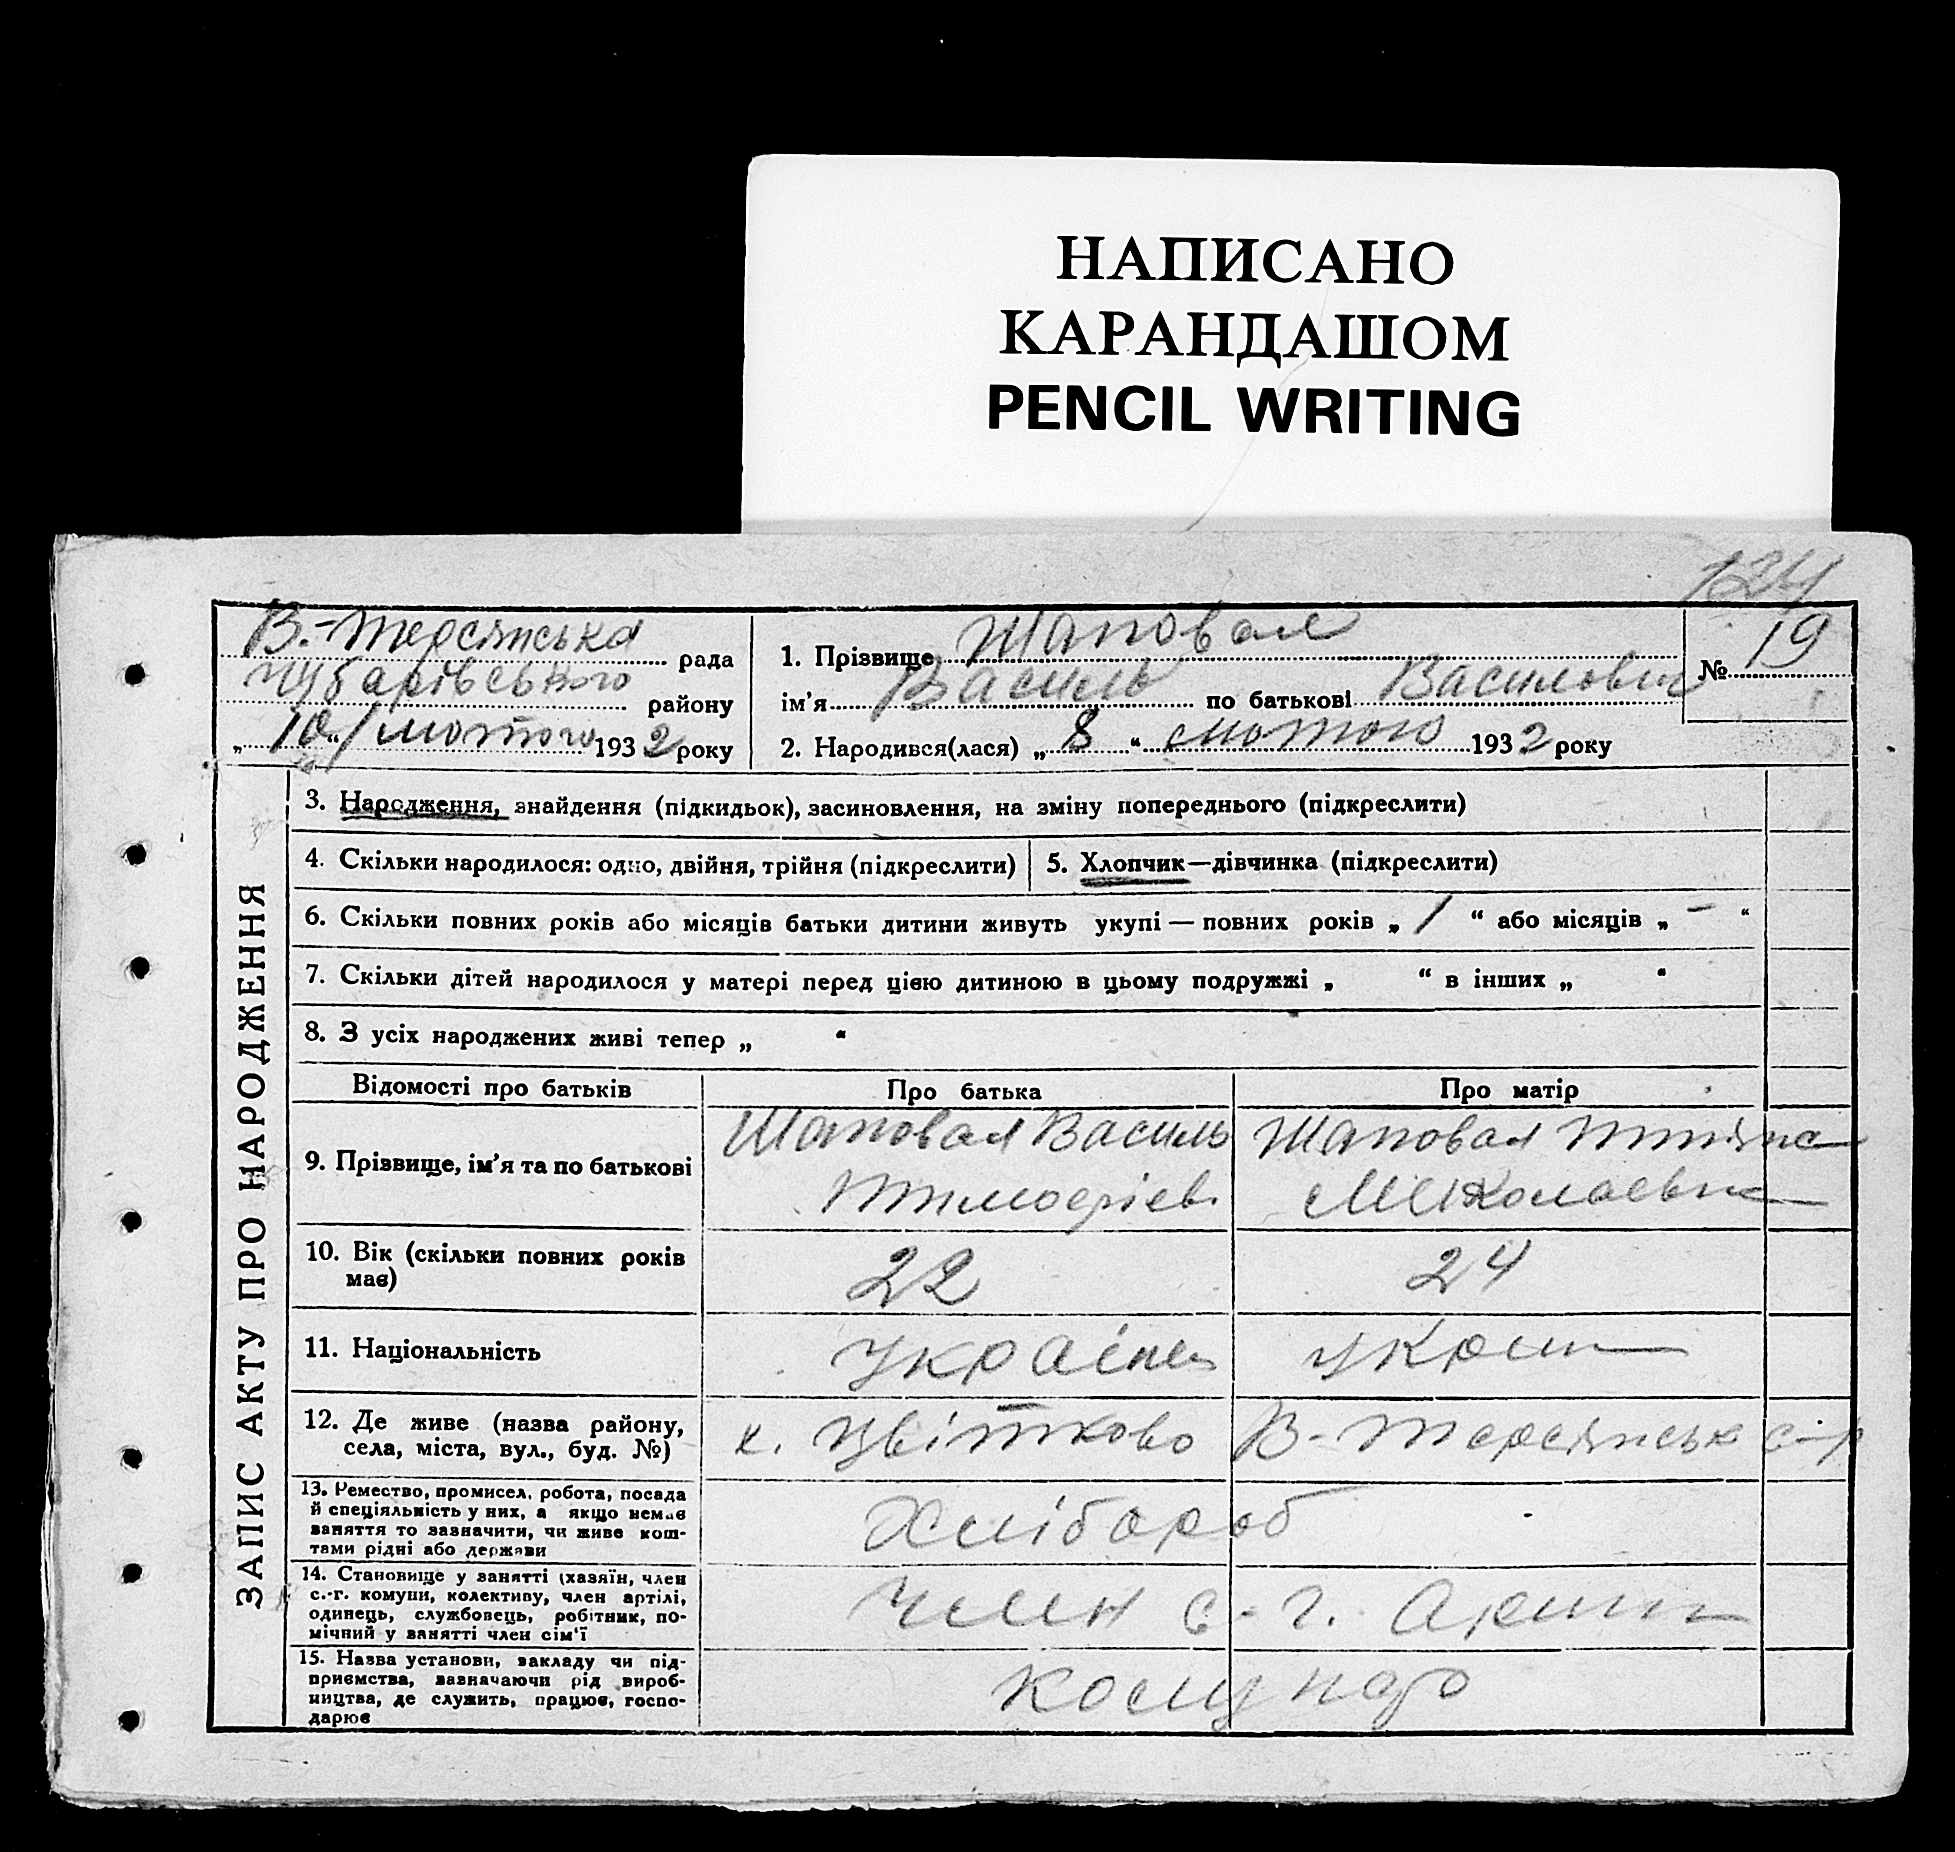 НАПИСАНО
КАРАНДАШОМ
PENCIL WRITING
124
В.-Терсянська рада
Чубарівського району
„10“ лютого 1932 року
1. Прізвище Шаповал
ім'я Василь по батькові Василович
2. Народився(лася) „8“ лютого 1932 року
№ 19
ЗАПИС АКТУ ПРО НАРОДЖЕННЯ
3. Народження, знайдення (підкидьок), засиновлення, на зміну попереднього (підкреслити)
4. Скільки народилося: одно, двійня, трійня (підкреслити)
5. Хлопчик—дівчинка (підкреслити)
6. Скільки повних років або місяців батьки дитини живуть укупі — повних років „ 1 “ або місяців „ - “
7. Скільки дітей народилося у матері перед цією дитиною в цьому подружжі „ “ в інших „ “
8. З усіх народжених живі тепер „ “
Відомості про батьків
Про батька
Про матір
9. Прізвище, ім'я та по батькові
Шаповал Василь
Тимофіїв.
Шаповал
Миколаєвна
10. Вік (скільки повних років
має)
22
24
11. Національність
Українец
Украин
12. Де живе (назва району,
села, міста, вул., буд. №)
х. Цвітково В-Терсянськ с-р
13. Ремество, промисел, робота, посада
й спеціяльність у них, а якщо немає
заняття то зазначити, чи живе кош-
тами рідні або держави
Хлібороб
14. Становище у занятті (хазяїн, член
с.-г. комуни, колективу, член артілі,
одинець, службовець, робітник, по-
мічний у занятті член сім'ї
член с.-г.
15. Назва установи, закладу чи під-
приємства, зазначаючи рід вироб-
ництва, де служить, працює, госпо-
дарює